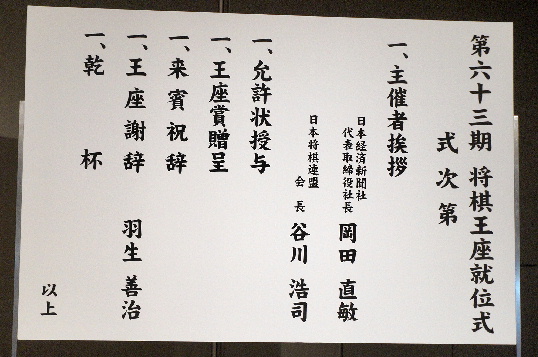 第六十三期 将棋王座就位式
式次第
一、主催者挨拶
日本経済新聞社
代表取締役社長 岡田 直敏
日本将棋連盟
会長 谷川 浩司
一、允許状授与
一、王座賞贈呈
一、来賓祝辞
一、王座謝辞 羽生 善治
一、乾杯
以上